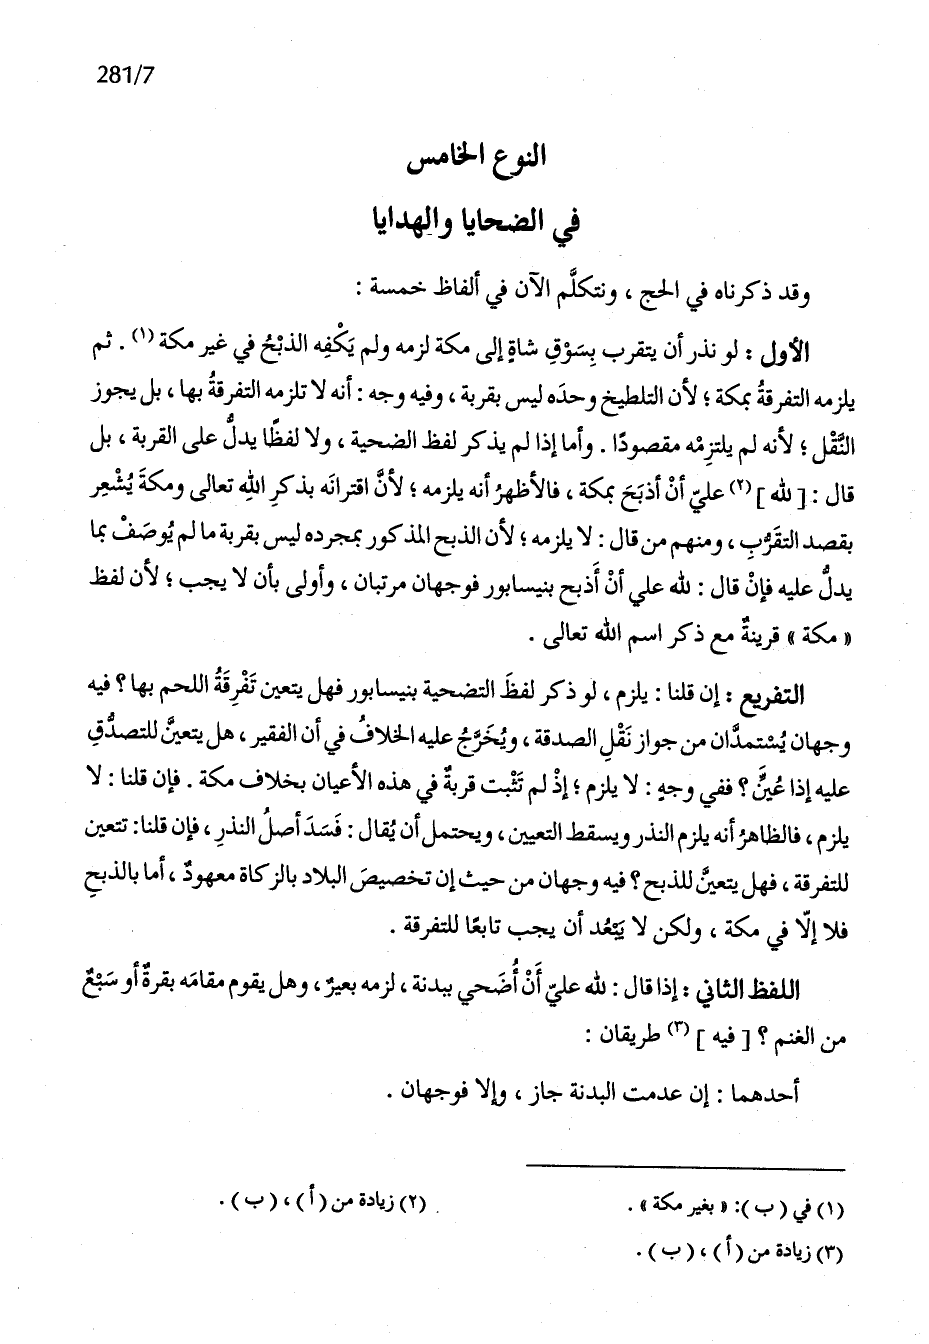 281/7
النوع الخامس
في الضحايا والهدايا
وقد ذكرناه في الحج ، ونتكلَّم الآن في ألفاظ خمسة :
الأول : لو نذر أن يتقرب بِسَوْقِ شاةٍ إلى مكة لزمه ولم يَكْفِه الذبْحُ في غير مكة (١) . ثم
يلزمه التفرقةُ بمكة ؛ لأن التلطيخ وحدَه ليس بقربة ، وفيه وجه : أنه لا تلزمه التفرقةُ بها ، بل يجوز
النَّقْل ؛ لأنه لم يلتزِمْه مقصودًا . وأما إذا لم يذكر لفظ الضحية ، ولا لفظًا يدلُّ على القربة ، بل
قال : [ لله ] (٢) عليّ أنْ أذبَحَ بمكة ، فالأظهرُ أنه يلزمه ؛ لأنَّ اقترانَه بذكرِ اللهِ تعالى ومكةَ يُشْعِر
بقصد التقرُّبِ ، ومنهم من قال : لا يلزمه ؛ لأن الذبح المذكور بمجرده ليس بقربة ما لم يُوصَفْ بما
يدلُّ عليه فإنْ قال : لله علي أنْ أَذبح بنيسابور فوجهان مرتبان ، وأولى بأن لا يجب ؛ لأن لفظ
« مكة » قرينةٌ مع ذكر اسم الله تعالى .
التفريع : إن قلنا : يلزم ، لو ذكر لفظَ التضحية بنيسابور فهل يتعين تَفْرِقَةُ اللحم بها ؟ فيه
وجهان يُسْتمدَّان من جواز نَقْلِ الصدقة ، ويُخَرَّجُ عليه الخلافُ في أن الفقير ، هل يتعينَّ للتصدُّقِ
عليه إذا عُينِّ ؟ ففي وجهٍ : لا يلزم ؛ إذْ لم تَثْبت قربةٌ في هذه الأعيان بخلاف مكة . فإن قلنا : لا
يلزم ، فالظاهرُ أنه يلزم النذر ويسقط التعيين ، ويحتمل أن يُقال : فَسَدَ أصلُ النذرِ ، فإن قلنا: تتعين
للتفرقة ، فهل يتعينَّ للذبح ؟ فيه وجهان من حيث إن تخصيصَ البلاد بالزكاة معهودٌ ، أما بالذبحِ
فلا إلّا في مكة ، ولكن لا يَبْعُد أن يجب تابعًا للتفرقة .
اللفظ الثاني : إذا قال : لله عليّ أَنْ أُضَحي ببدنة ، لزمه بعيرٌ ، وهل يقوم مقامَه بقرةٌ أو سَبْعٌ
من الغنم ؟ [ فيه ] (٣) طريقان :
أحدهما : إن عدمت البدنة جاز ، وإلا فوجهان .
(١) في ( ب ): « بغير مكة » .
(٢) زيادة من ( أ ) ، ( ب ) .
(٣) زيادة من ( أ ) ، ( ب ) .